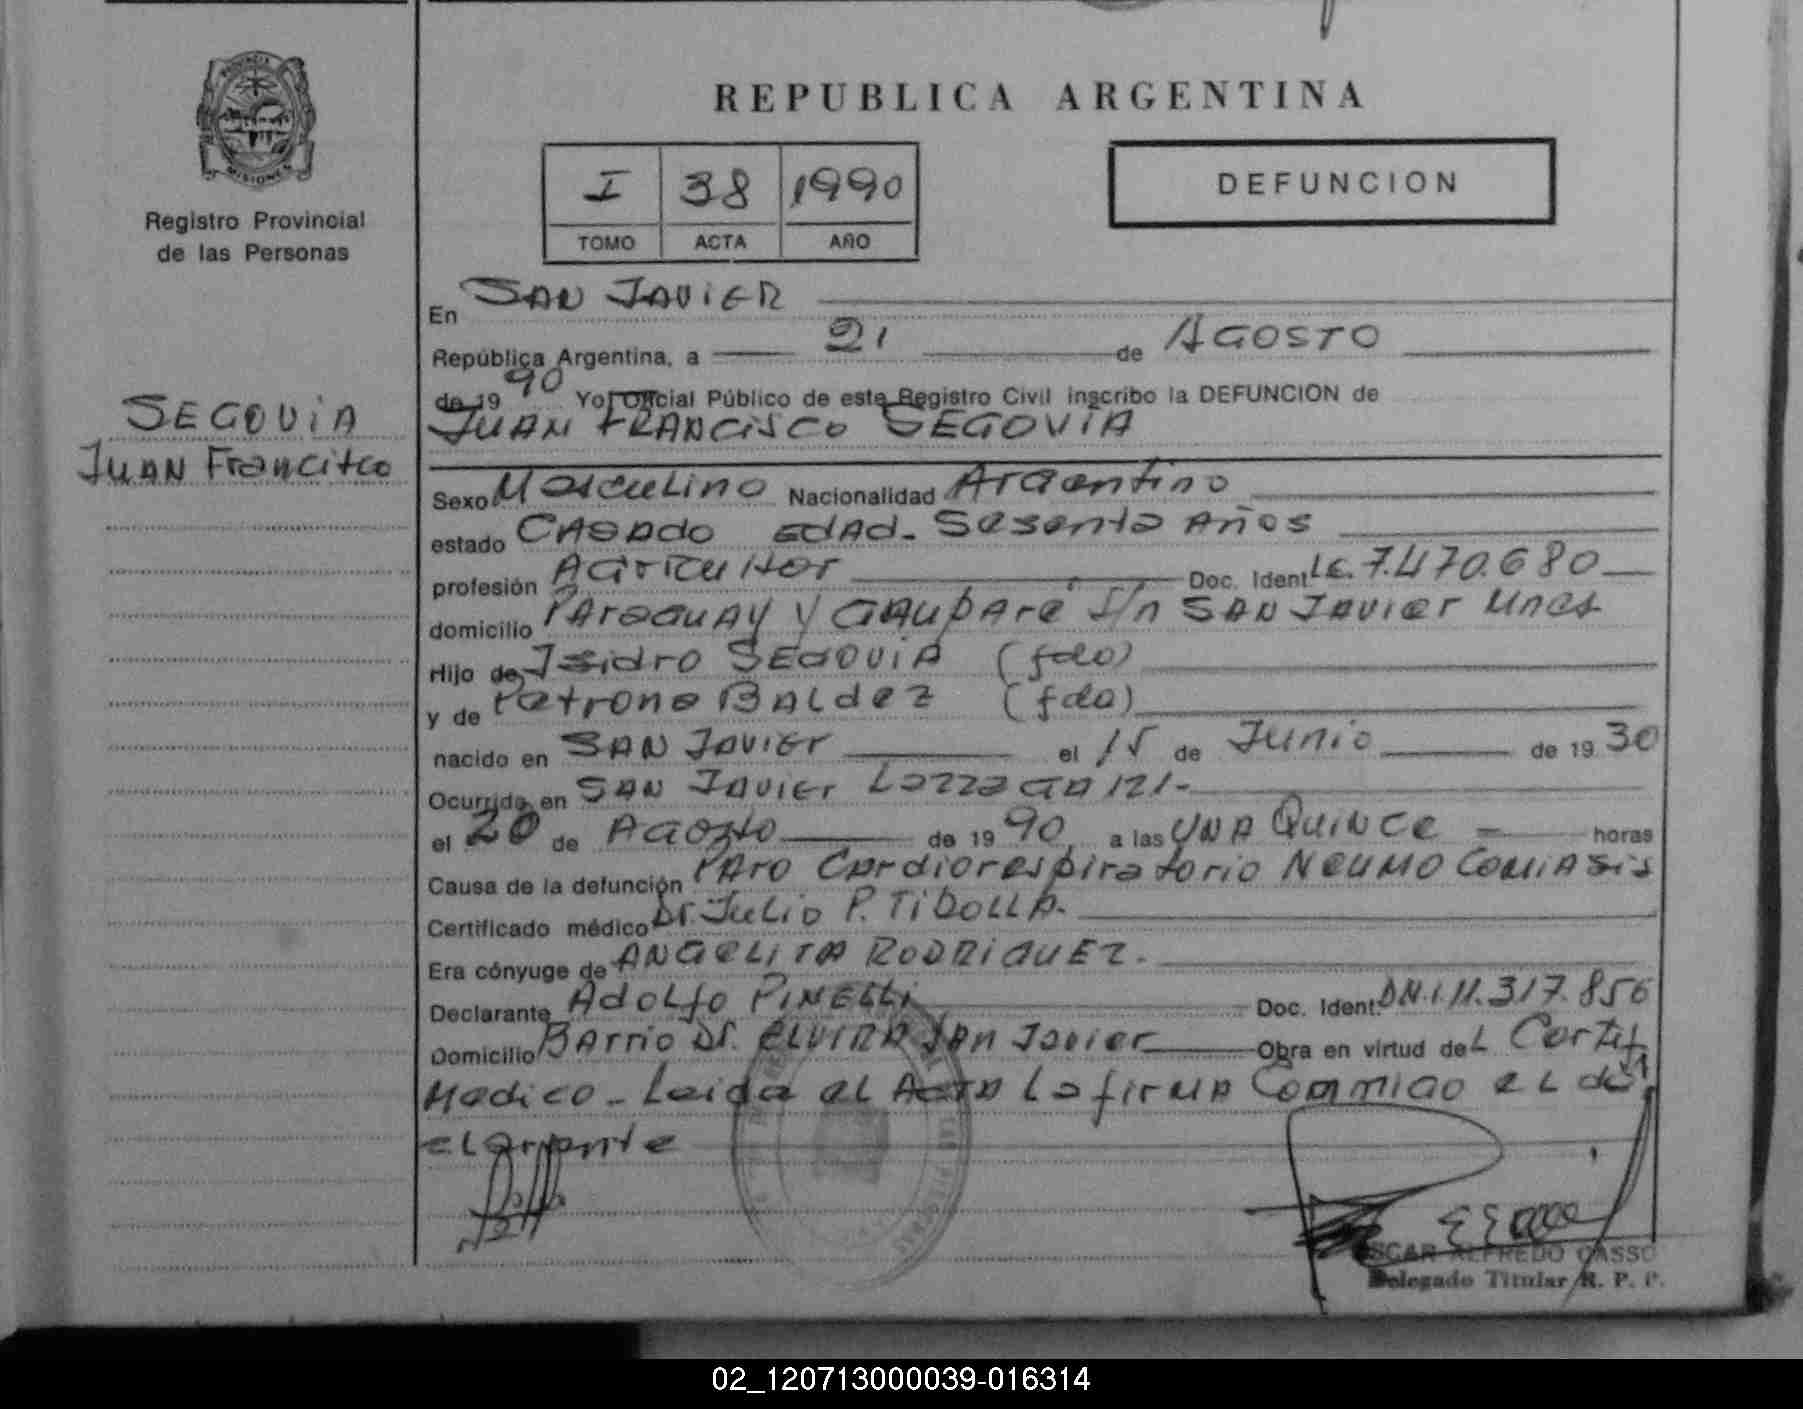 PROVINCIA
MISIONES
Registro Provincial
de las Personas
SEGOVIA
JUAN Francisco
REPUBLICA ARGENTINA
I 38 1990
TOMO ACTA AÑO
DEFUNCION
En SAN JAVIER
República Argentina, a 21 de AGOSTO
de 19 90 Yo, Oficial Público de este Registro Civil inscribo la DEFUNCION de
JUAN FRANCISCO SEGOVIA
Sexo Masculino Nacionalidad Argentino
estado CASADO EDAD- Sesenta Años
profesión Agricultor Doc. Ident. L.E. 7.470.680
domicilio PARAGUAY Y GAUPARE S/n SAN JAVIER Mnes
Hijo de Isidro SEGOVIA (fdo)
y de Petrona BALdez (fda)
nacido en SAN JAVIER el 15 de Junio de 19 30
Ocurrida en SAN JAVIER
el 20 de Agosto de 19 90 a las UNA QUINCE horas
Causa de la defunción PARO Cardiorespiratorio NEUMO
Certificado médico Dr. Julio P. TIDOLLA.
Era cónyuge de ANGELITA RODRIGUEZ.
Declarante ADOLfo PINELLI Doc. Ident. DNI 11.317.856
Domicilio BArrio Dr. ELVIRA SAN Javier Obra en virtud deL Certif
Medico - Leida el ACTA La firma Conmigo el de
clarante
OSCAR ALFREDO CASSO
Delegado Titular R. P. P.
02_120713000039-016314